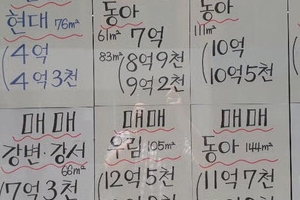 현대 76m²
(4억
(4억 3천
동아
61m² 7억
83m² (8억 9천
(9억 2천
동아
111m²
(10억
(10억 5천
매매
강변·강서
66m²
(7억 3천
매매
우림 105m²
(12억 5천
매매
동아 144m²
(11억 7천